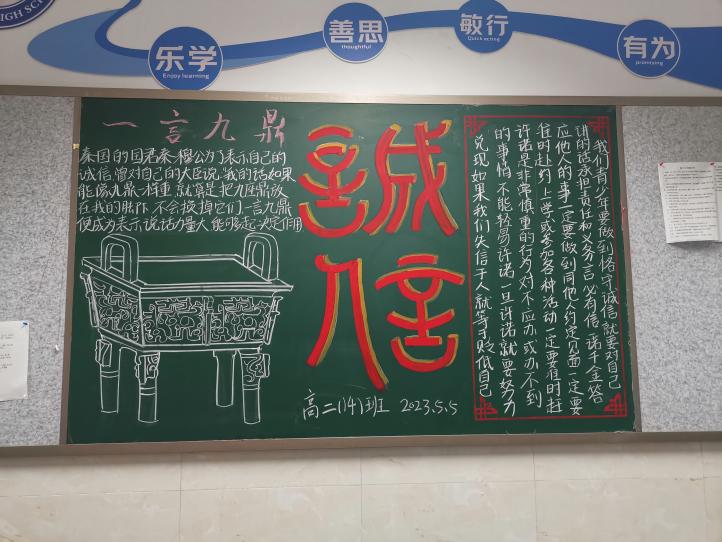 IGH SC
乐学
Enjoy learning
善思
thoughtful
敏行
Quick acting
有为
promising
一言九鼎
秦国的国君秦穆公为了表示自己的
诚信,曾对自己的大臣说,我的话如果
能像九鼎一样重,就算是把九座鼎放
在我的 不会换掉它们,一言九鼎
便成为表示说话力量大,能够起决定作用
誠
信
高二(14)班 2023.5.5
我们青少年要做到恪守诚信就要对自己
讲的话承担责任和义务言必有信一诺千金答
应他人的事一定要做到同他人约定见面一定要
准时赴约上学或参加各种活动一定要准时赶
许诺是非常慎重的行为对不应办或办不到
的事情不能轻易许诺一旦许诺就要努力
兑现如果我们失信于人就等于贬低自己